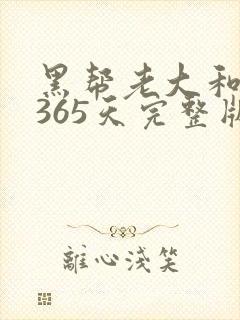 黑帮老大和
365天完整版
離心淺笑